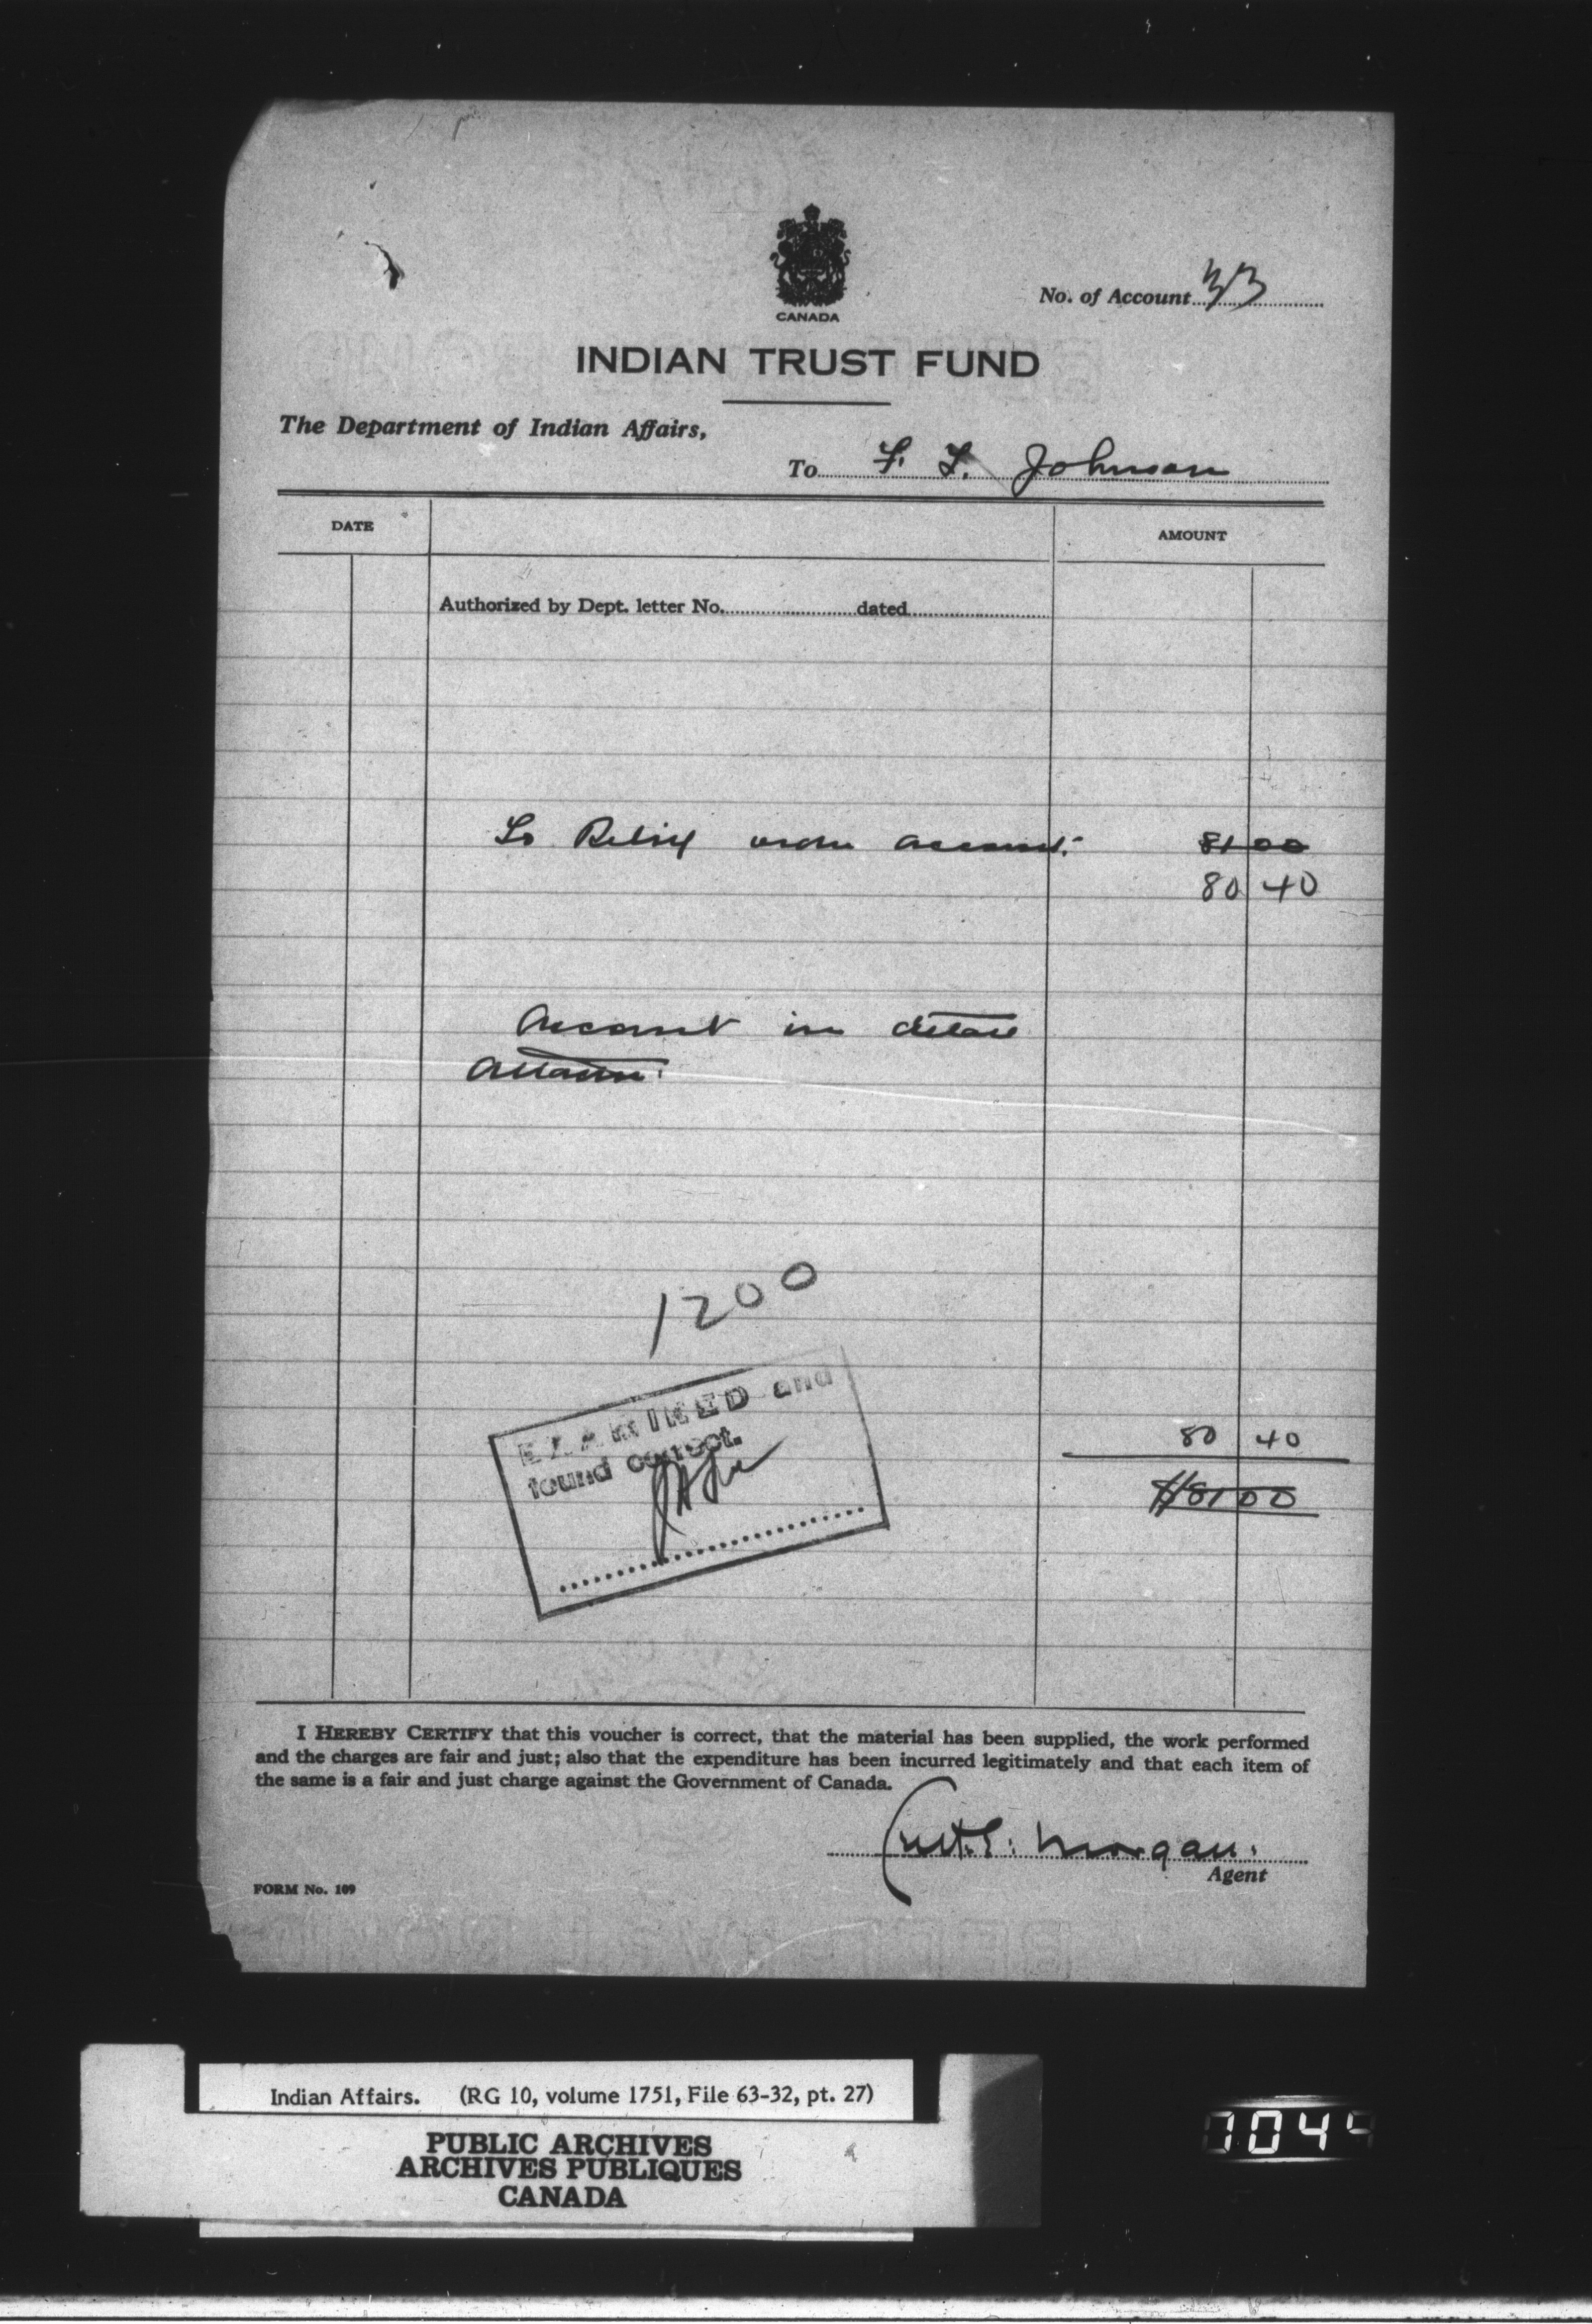 CANADA
No. of Account 33
INDIAN TRUST FUND
The Department of Indian Affairs,
To F. F. Johnson
DATE
AMOUNT
Authorized by Dept. letter No. dated
To Relief order account. 81 00
80 40
Account in detail
attached.
1200
EXAMINED and
found correct.
80 40
$81 00
I HEREBY CERTIFY that this voucher is correct, that the material has been supplied, the work performed
and the charges are fair and just; also that the expenditure has been incurred legitimately and that each item of
the same is a fair and just charge against the Government of Canada.
Morgan.
Agent
FORM No. 109
Indian Affairs. (RG 10, volume 1751, File 63-32, pt. 27)
PUBLIC ARCHIVES
ARCHIVES PUBLIQUES
CANADA
1044